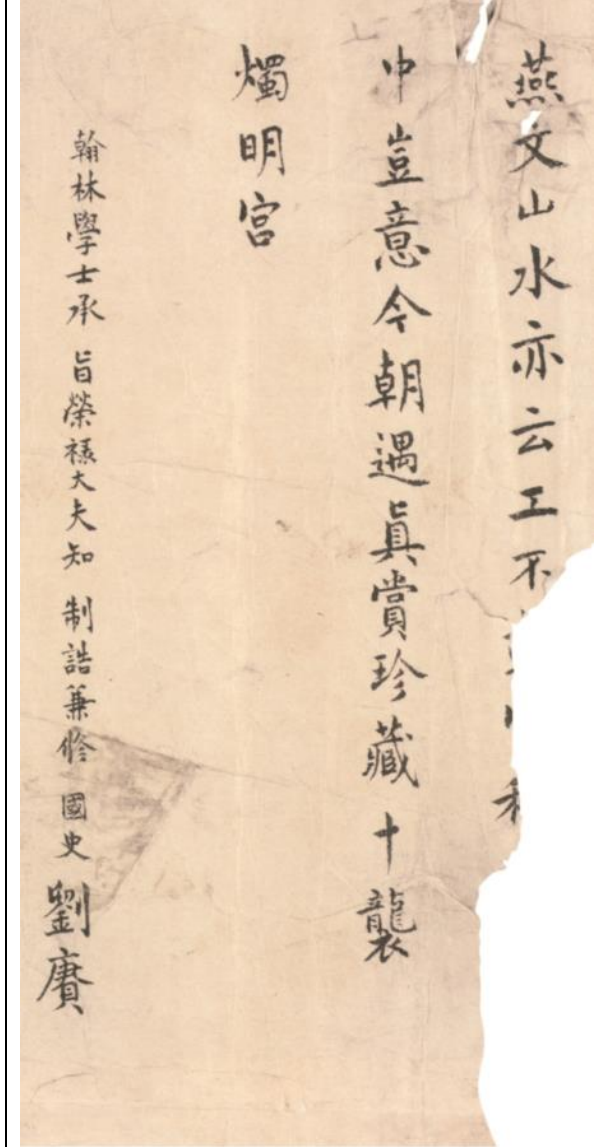 燕文山水亦云工不
中豈意今朝遇眞賞珍藏十襲
燭明宮
翰林學士承 旨榮祿大夫知 制誥兼修 國史劉賡